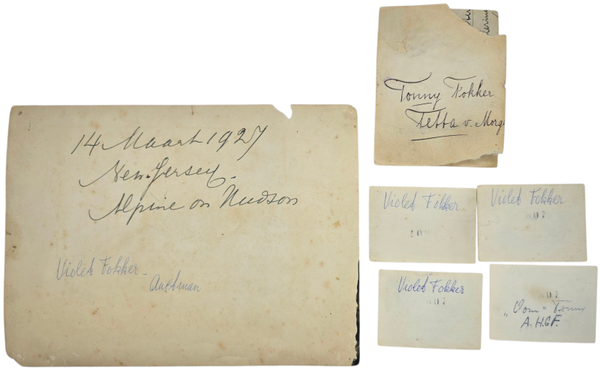 14 Maart 1927
New-Jersey.
Alpine on Hudson
Violet Fokker -
Tonny Fokker
Tetta v. Morg
Violet Fokker
Violet Fokker
Violet Fokker
"Oom - Tonny
A.H.G.F.